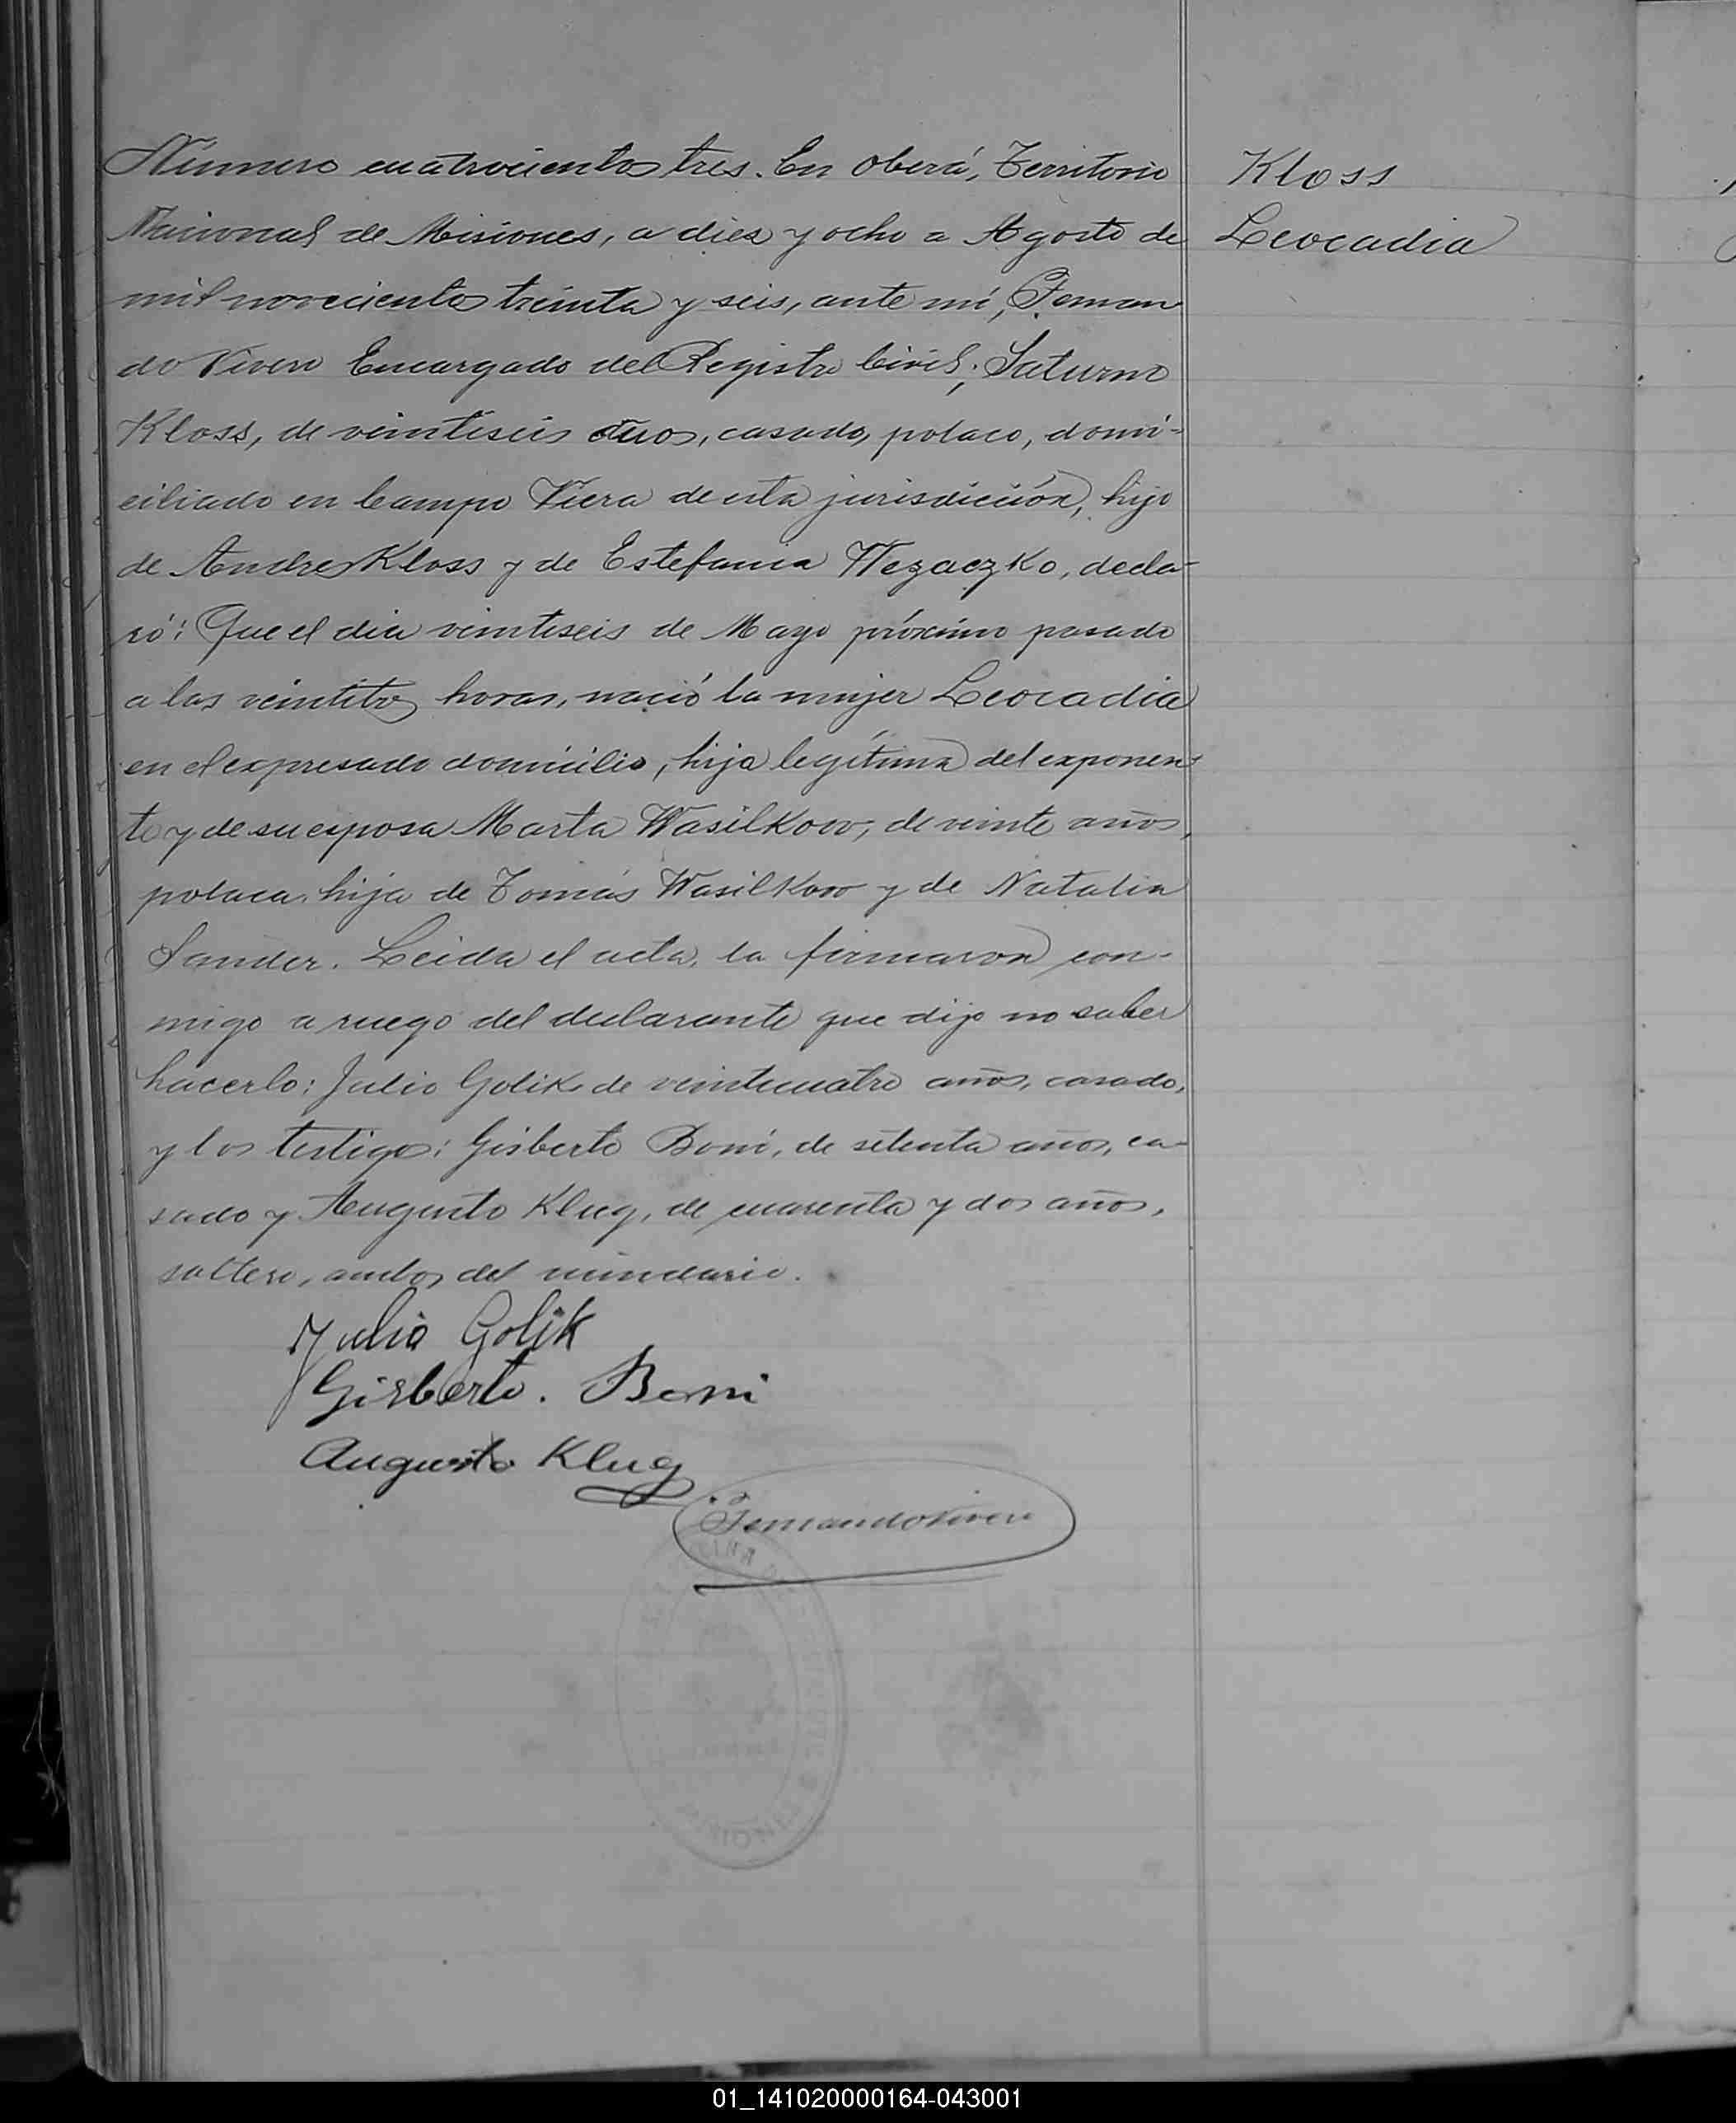 Número cuatrocientos tres. En Oberá, Territorio
Nacional de Misiones, a diez y ocho a Agosto de
mil novecientos treinta y seis, ante mí, Fernan
do Vivero Encargado del Registro Civil; Saturno
Kloss, de veintiseis años, casado, polaco, domi-
ciliado en Campo Viera de esta jurisdicción, hijo
de Andres Kloss y de Estefania Wezaczko, decla-
ró: Que el dia veintiseis de Mayo próximo pasado
a las veintitres horas, nació la mujer Leocadia
en el expresado domicilio, hija legítima del exponen-
te y de su esposa Marta Wasilkow, de veinte años,
polaca, hija de Tomás Wasilkow y de Natalia
Sander. Leida el acta, la firmaron con-
migo a ruego del declarante que dijo no saber
hacerlo: Julio Golik de veinticuatro años, casado,
y los testigos: Gisberto Boni, de setenta años, ca-
sado y Augusto Klug, de cuarenta y dos años,
soltero, ambos del vecindario.
Julio Golik
Gisberto. Boni
Augusto Klug
Fernando Vivero
Kloss
Leocadia
01_141020000164-043001